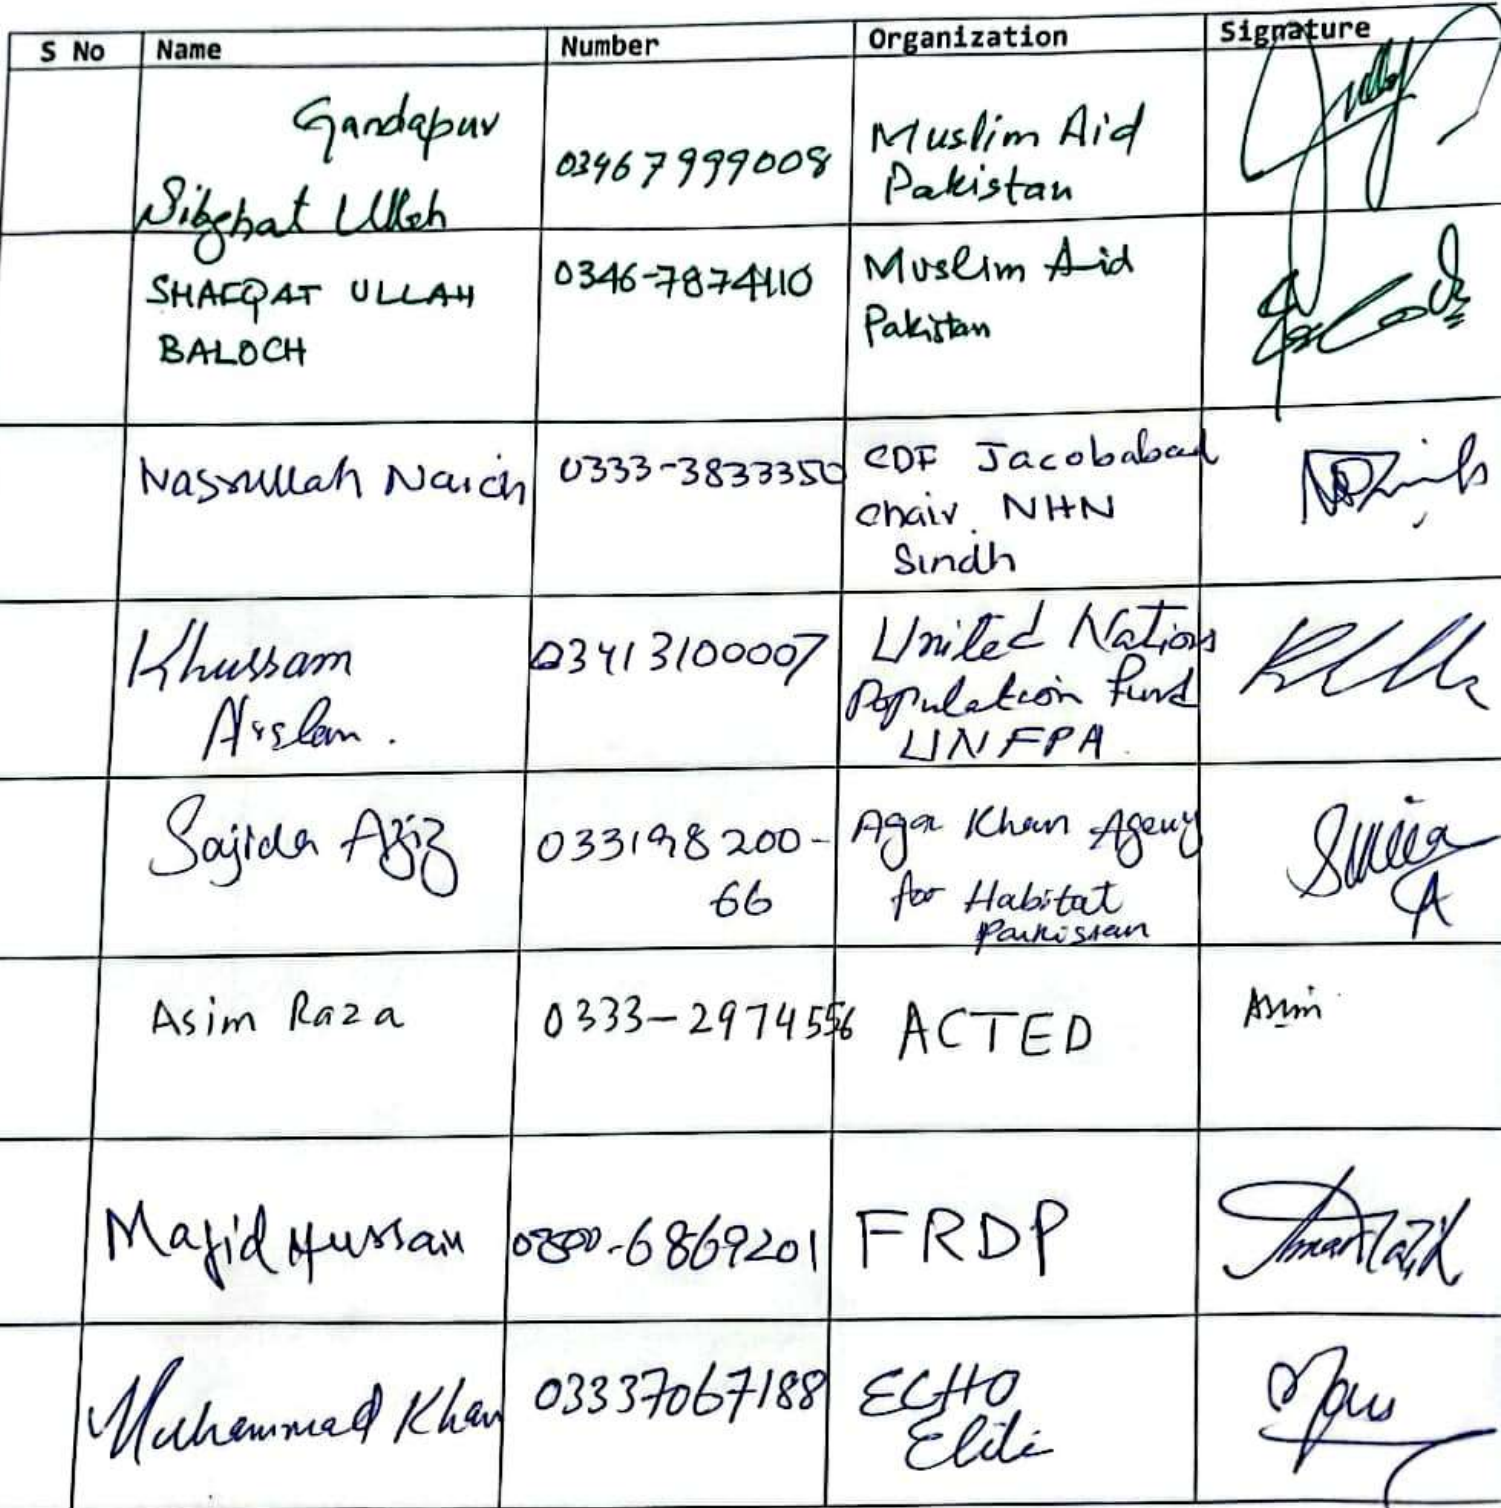 S No Name Number Organization Signature
Gandapur
Sibghat Ullah
03467999008
Muslim Aid
Pakistan
SHAFQAT ULLAH
BALOCH
0346-7874110
Muslim Aid
Pakistan
Nasrullah Naich
0333-3833350
CDF Jacobabad
chair NHN
Sindh
Khussam
Arslan.
03413100007
United Nations
Population Fund
UNFPA
Sajida Aziz
033198200-
66
Aga Khan Agency
for Habitat
Pakistan
Asim Raza
0333-2974556
ACTED
Asim
Majid Hussain
-6869201
FRDP
Muhammad Khan
03337067188
ECHO
Elite